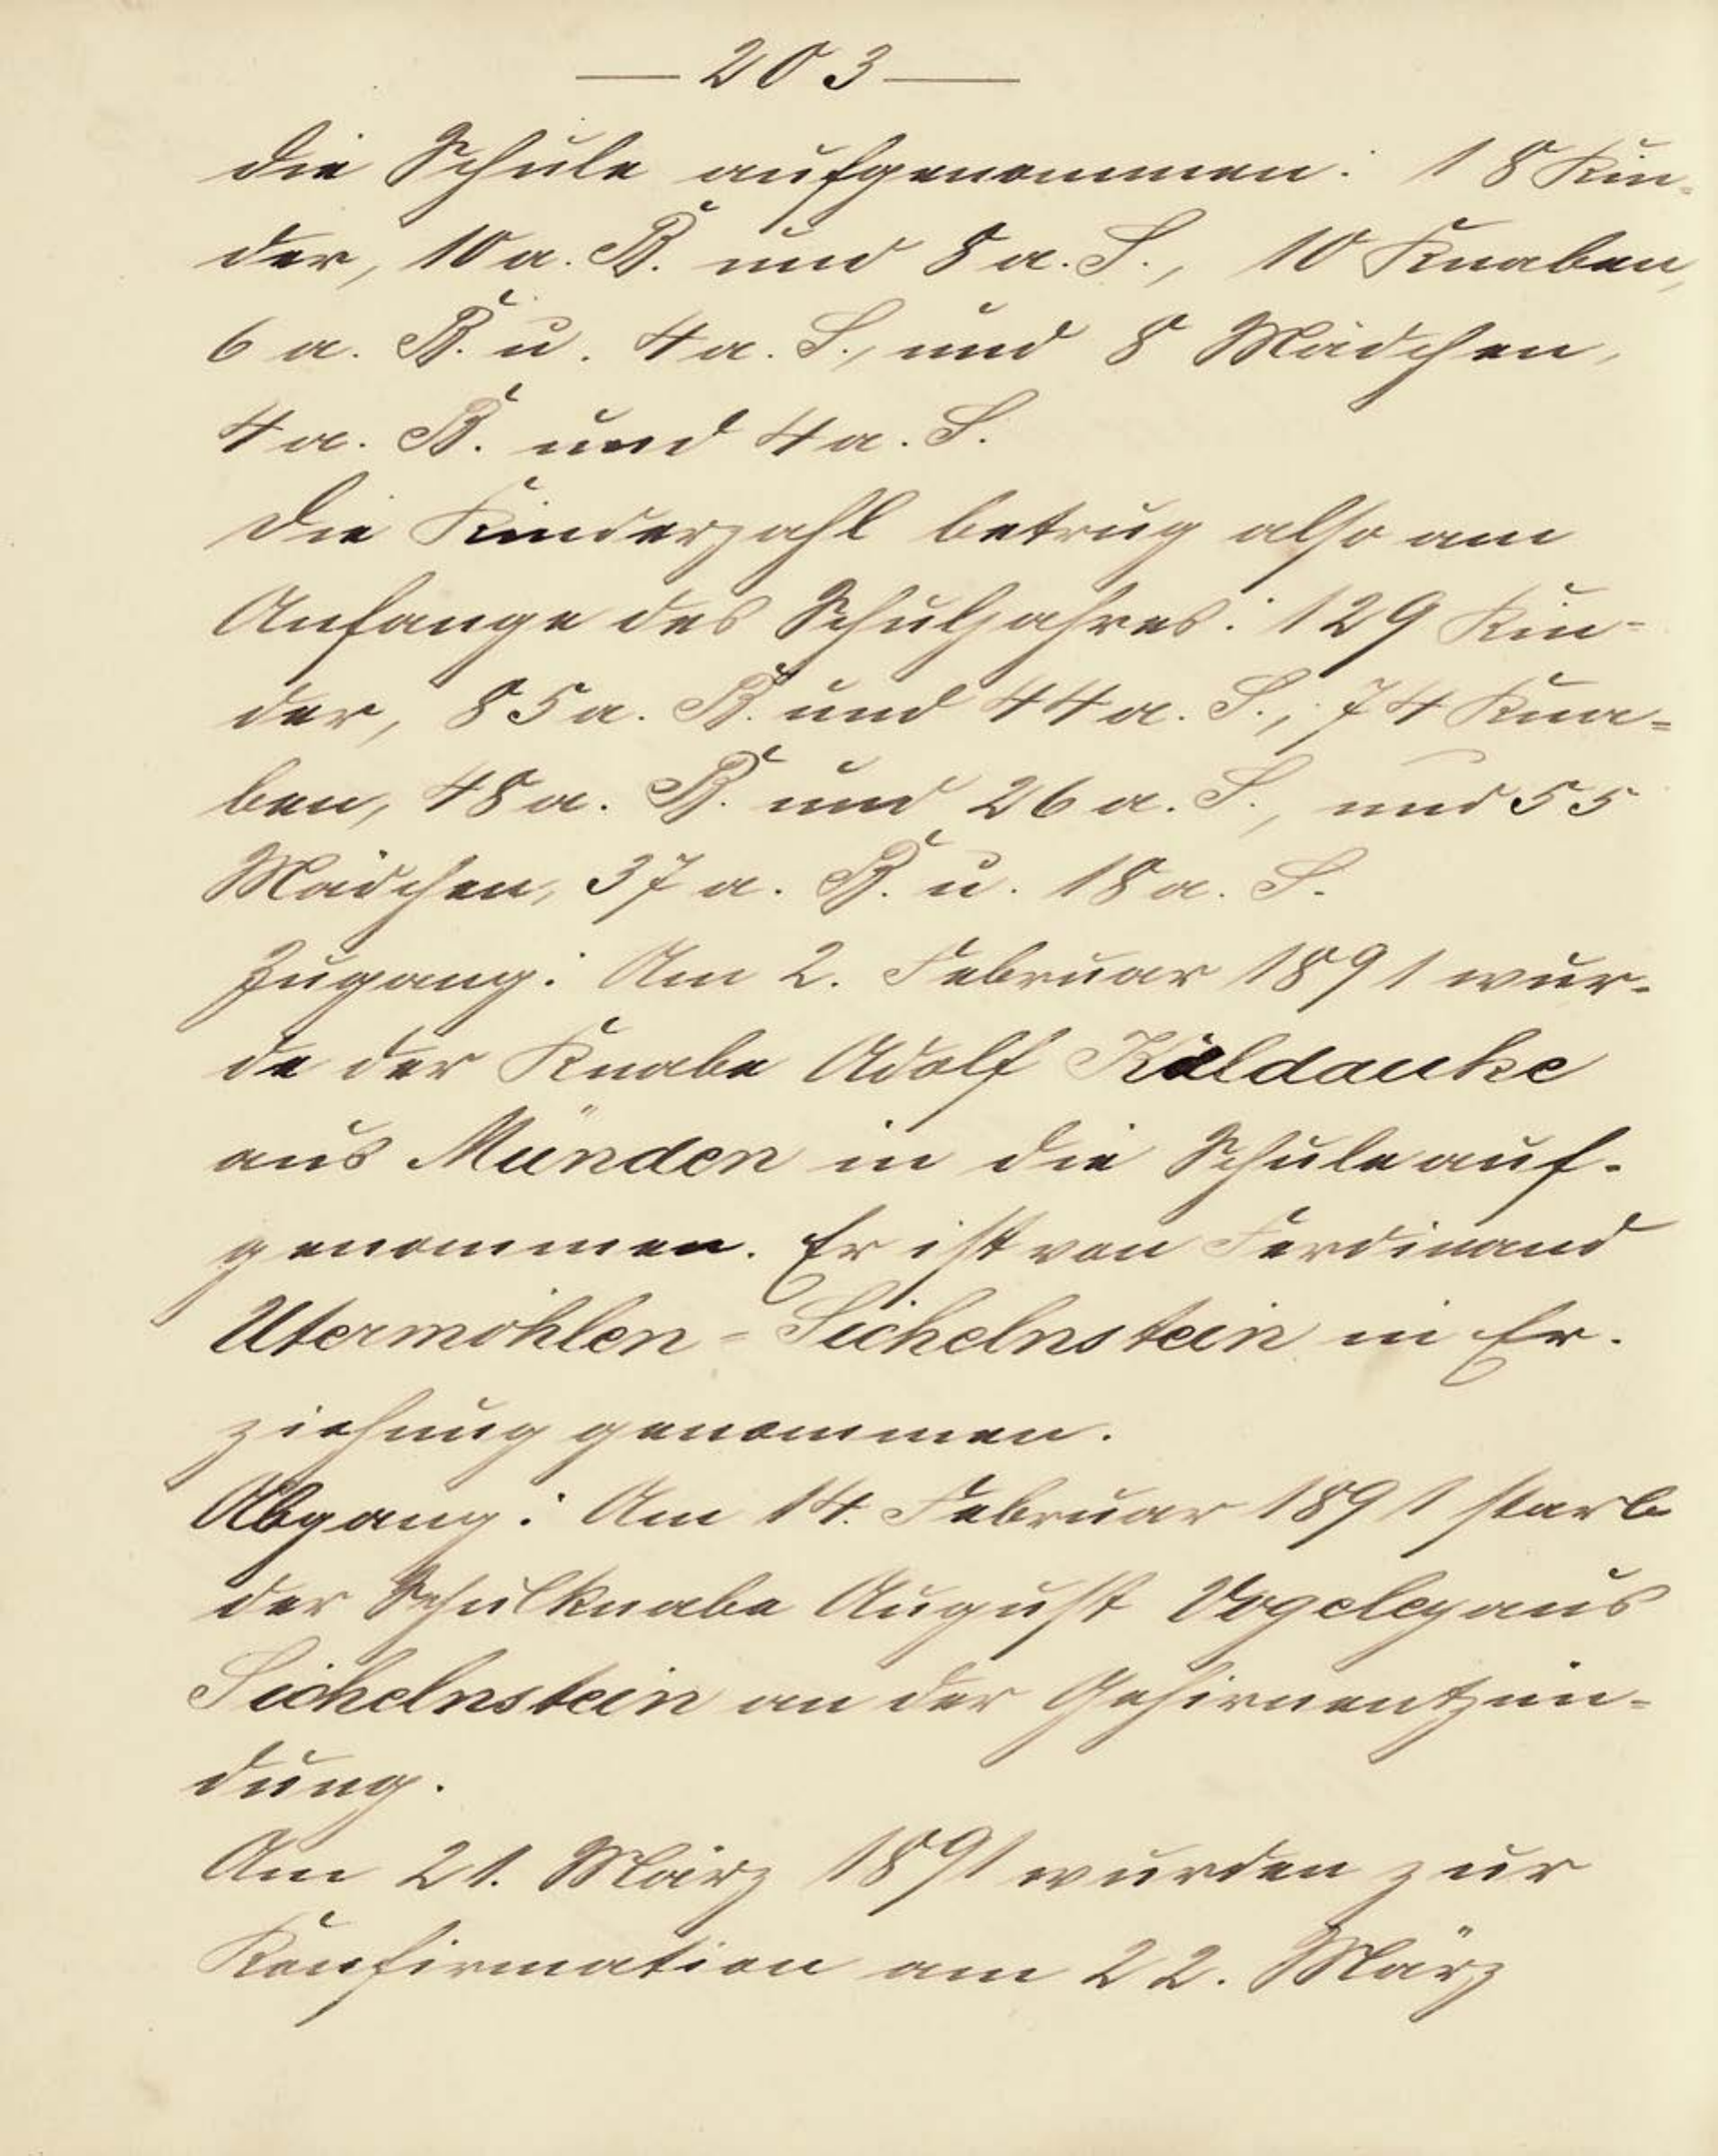 — 203 —
die Schule aufgenommen: 18 Kin-
der, 10 a. B. und 8 a. S., 10 Knaben,
6 a. B. u. 4 a. S., und 8 Mädchen,
4 a. B. und 4 a. S.
Die Kinderzahl betrug also am
Anfange des Schuljahres: 129 Kin-
der, 85 a. B. und 44 a. S., 74 Kna=
ben, 48 a. B. und 26 a. S., und 55
Mädchen, 37 a. B. u. 18 a. S.
Zugang: Am 2. Februar 1891 wur-
de der Knabe Adolf Kaldauke
aus Münden in die Schule auf-
genommen. Er ist von Ferdinand
Utermöhlen - Sichelnstein in Er-
ziehung genommen.
Abgang: Am 14. Februar 1891 starb
der Schulknabe August Vogeley aus
Sichelnstein an der Gehirnentzün-
dung.
Am 21. März 1891 wurden zur
Konfirmation am 22. März